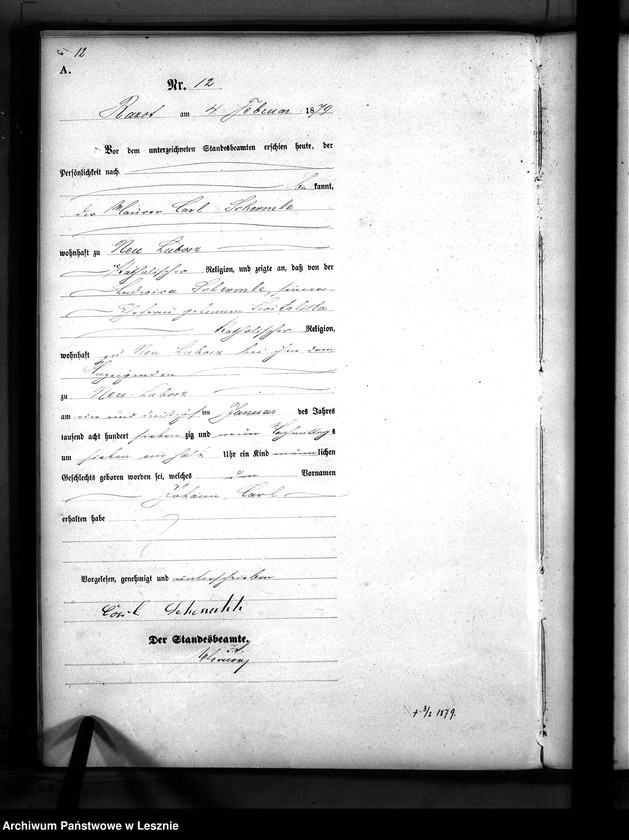 12
A.
Nr. 12
Racot am 4 Februar 1879
Vor dem unterzeichneten Standesbeamten erschien heute, der
Persönlichkeit nach
be kannt,
der Maurer Carl
wohnhaft zu Neu Lubosz
Katholischer Religion, und zeigte an, daß von der
Ludwica
Ehefrau geborenen
Katholischer Religion,
wohnhaft zu Neu Lubosz bei ihm dem
Anzeigenden
zu Neu-Lubosz
am ein und dreißigsten Januar des Jahres
tausend acht hundert sieben zig und neun Nachmittags
um sieben ein halb Uhr ein Kind männlichen
Geschlechts geboren worden sei, welches den Vornamen
Johann Carl
erhalten habe
Vorgelesen, genehmigt und unterschrieben
Carl
Der Standesbeamte.
+ 3/2 1879.
Archiwum Państwowe w Lesznie